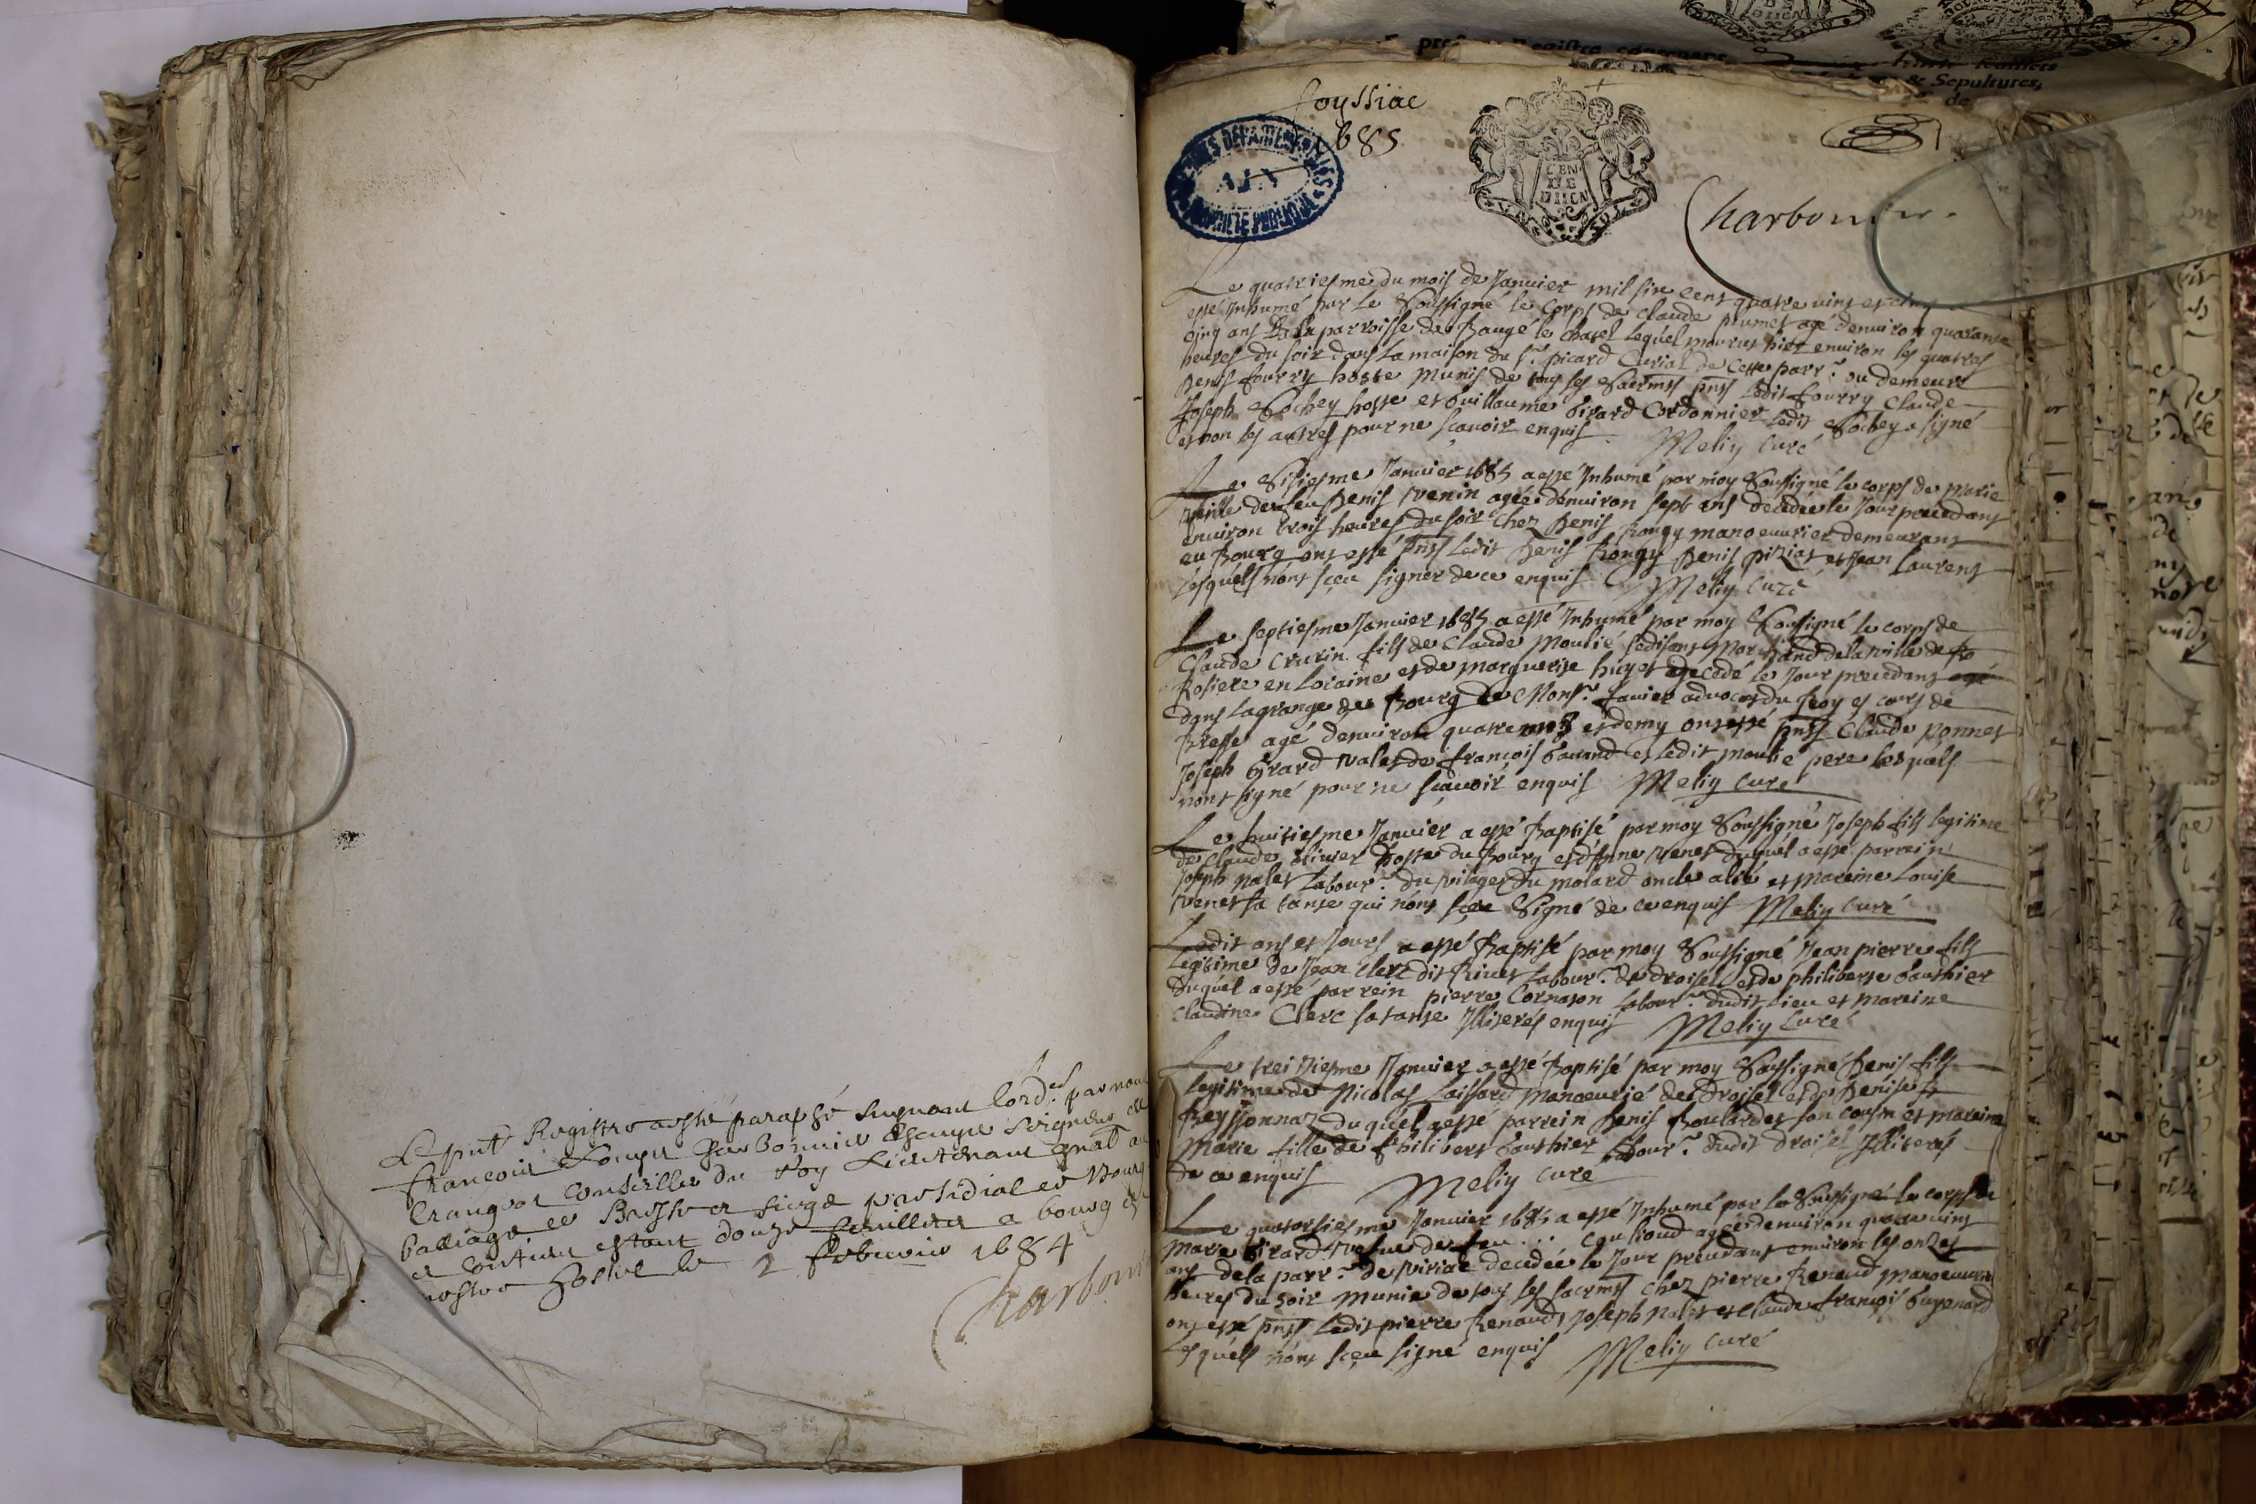 Le pnt Registre a esté paraphé suyvant l'ord. par nous
françois Louys Charbonnier Escuyer Seigneur de
Crangeat Conseiller du Roy Lieutenant gnal au
balliage de Bresse et siege presidial de Bourg
et contient estant douze feuilletz a bourg
nostre hostel le 2 febvrier 1684
Charbonn
foyssiac
1685
ARCHIVES DEPARTEMENTALES
AIN
PROPRIETE PUBLIQUE
GEN DE DIION
Charbonnier
Le quatriesme du mois de Janvier mil six cens quatre vins et cinq
esté Inhumé par Le Soussigné le Corps de Claude prumet agé denviron quarante
cinq ans De la parroisse de Baugé le Chatel Lequel mourut hier environ les quatres
heures du soir dans La maison du Sr. picard Curial de Cette parr. ou demeure
Denis fourry hoste Munis de tous les Sacrmts pnts Ledit fourry Claude
Joseph Sochey hoste et Guillaume Girard Cordonnier Ledit Sochey a signé
et non les autres pour ne sçavoir enquis Meliy Curé
Le Sisiesme Janvier 1685 a esté Inhumé par moy Soussigné le corps de Marie
fille de feu Denis venin agée denviron sept ans decedée le Jour precedant
environ trois heures du soir Chez Denis Rongy manoeuvrier demeurant
au Bourg ont esté pnts Ledit Denis Rongy Denis piziat et Jean Laurent
Lesquels n'ont sçeu signer de ce enquis Meliy Curé
Le septiesme Janvier 1685 a esté Inhumé par moy Soussigné le corps de
Claude fils de Claude Moulié se disant Marchand de la ville de
Rosiere en Loraine et de Marguerite huyet decedé le Jour precedant
dans la grange du Bourg de Monsr. favier advocat du Roy et cours de
Bresse agé denviron quatre mois et demy ont esté pnts Claude ponnet
Joseph Girard valet de françois Gauand et ledit Moulié pere Lesquels
n'ont signé pour ne sçavoir enquis Meliy Curé
Le huitiesme Janvier a esté Baptisé par moy Soussigné Joseph fils legitime
de Claude olivier hoste du Bourg et d'Anne venet duquel a esté parrein
Joseph palet Labour. du vilage du molard oncle alié et Mareine Louise
venet sa tante qui n'ont sçeu Signé de ce enquis Meliy Curé
Ledit ans et Jours a esté Baptisé par moy Soussigné Jean pierre fils
legitime de Jean Clerc dit Labour. de droisel et de philiberte Gauthier
duquel a esté parrein pierre Cornaton Labour. dudit Lieu et Mareine
Claudine Clerc sa tante Illiterés enquis Meliy Curé
Le treiziesme Janvier a esté Baptisé par moy Soussigné Denis fils
legitime de Nicolas Laissard Manoeuvrié de droisel et de Denise
Beyssonnaz duquel a esté parrein Denis Boulardet son cousin et Mareine
Marie fille de Philibert Gauthier Labour. dudit droisel Illiterés
de ce enquis Meliy Curé
Le quatorsiesme Janvier 1685 a esté Inhumé par le Soussigné le corps de
Marie Girard vefve de feu ... Couilloud agée denviron quatre vins
ans de la parr. de viriat decedée le Jour precedant environ les onzes
heures du soir Munie de tous les sacrmts Chez pierre Renaud Manoeuvrié
ont esté pnts Ledit pierre Renaud Joseph palet et Claude françois Guyenard
Lesquels n'ont sçeu signé enquis Meliy Curé
& Sepultures,
de